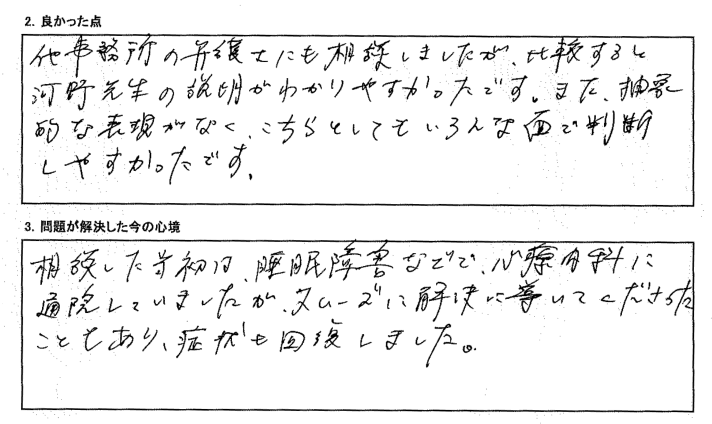 2. 良かった点
他事務所の弁護士にも相談しましたが、比較すると
河野先生の説明がわかりやすかったです。また、抽象
的な表現がなく、こちらとしてもいろんな面で判断
しやすかったです。
3. 問題が解決した今の心境
相談した当初は、睡眠障害などで、心療内科に
通院していましたが、スムーズに解決に導いてくださった
こともあり、症状も回復しました。